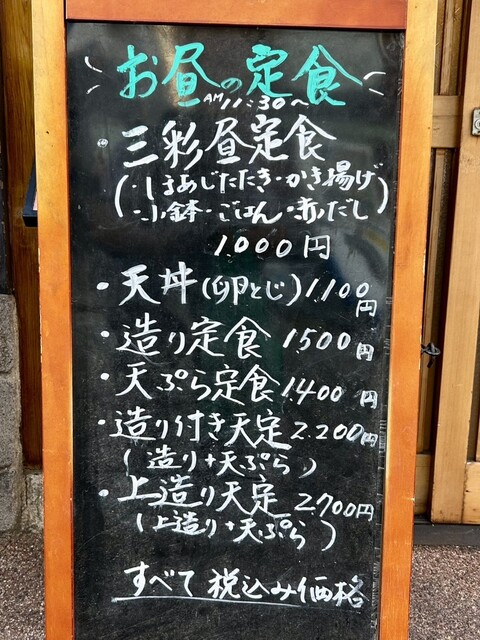 お昼の定食
AM11:30〜
・三彩昼定食
(・しまあじたたき・かき揚げ
・小鉢・ごはん・赤だし)
1000円
・天丼(卵とじ)1100円
・造り定食 1500円
・天ぷら定食 1400円
・造り付き天定 2.200円
(造り+天ぷら)
・上造り天定 2700円
(上造り+天ぷら)
すべて 税込み価格